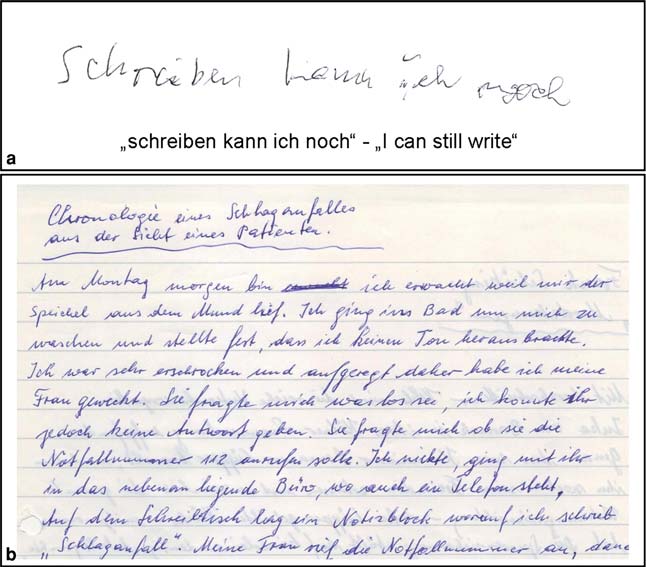 Schreiben kann ich noch
„schreiben kann ich noch“ - „I can still write“
a
Chronologie eines Schlaganfalles
aus der Sicht eines Patienten.
Am Montag morgen bin ich erwacht weil mir der
Speichel aus dem Mund lief. Ich ging ins Bad um mich zu
waschen und stellte fest, dass ich keinen Ton herausbrachte.
Ich war sehr erschrocken und aufgeregt daher habe ich meine
Frau geweckt. Sie fragte mich was los sei, ich konnte ihr
jedoch keine Antwort geben. Sie fragte mich ob sie die
Notfallnummer 112 anrufen solle. Ich nickte, ging mit ihr
in das nebenan liegende Büro, wo auch ein Telefon steht,
Auf dem Schreibtisch lag ein Notizblock worauf ich schrieb
„Schlaganfall“. Meine Frau rief die Notfallnummer an, dann
b